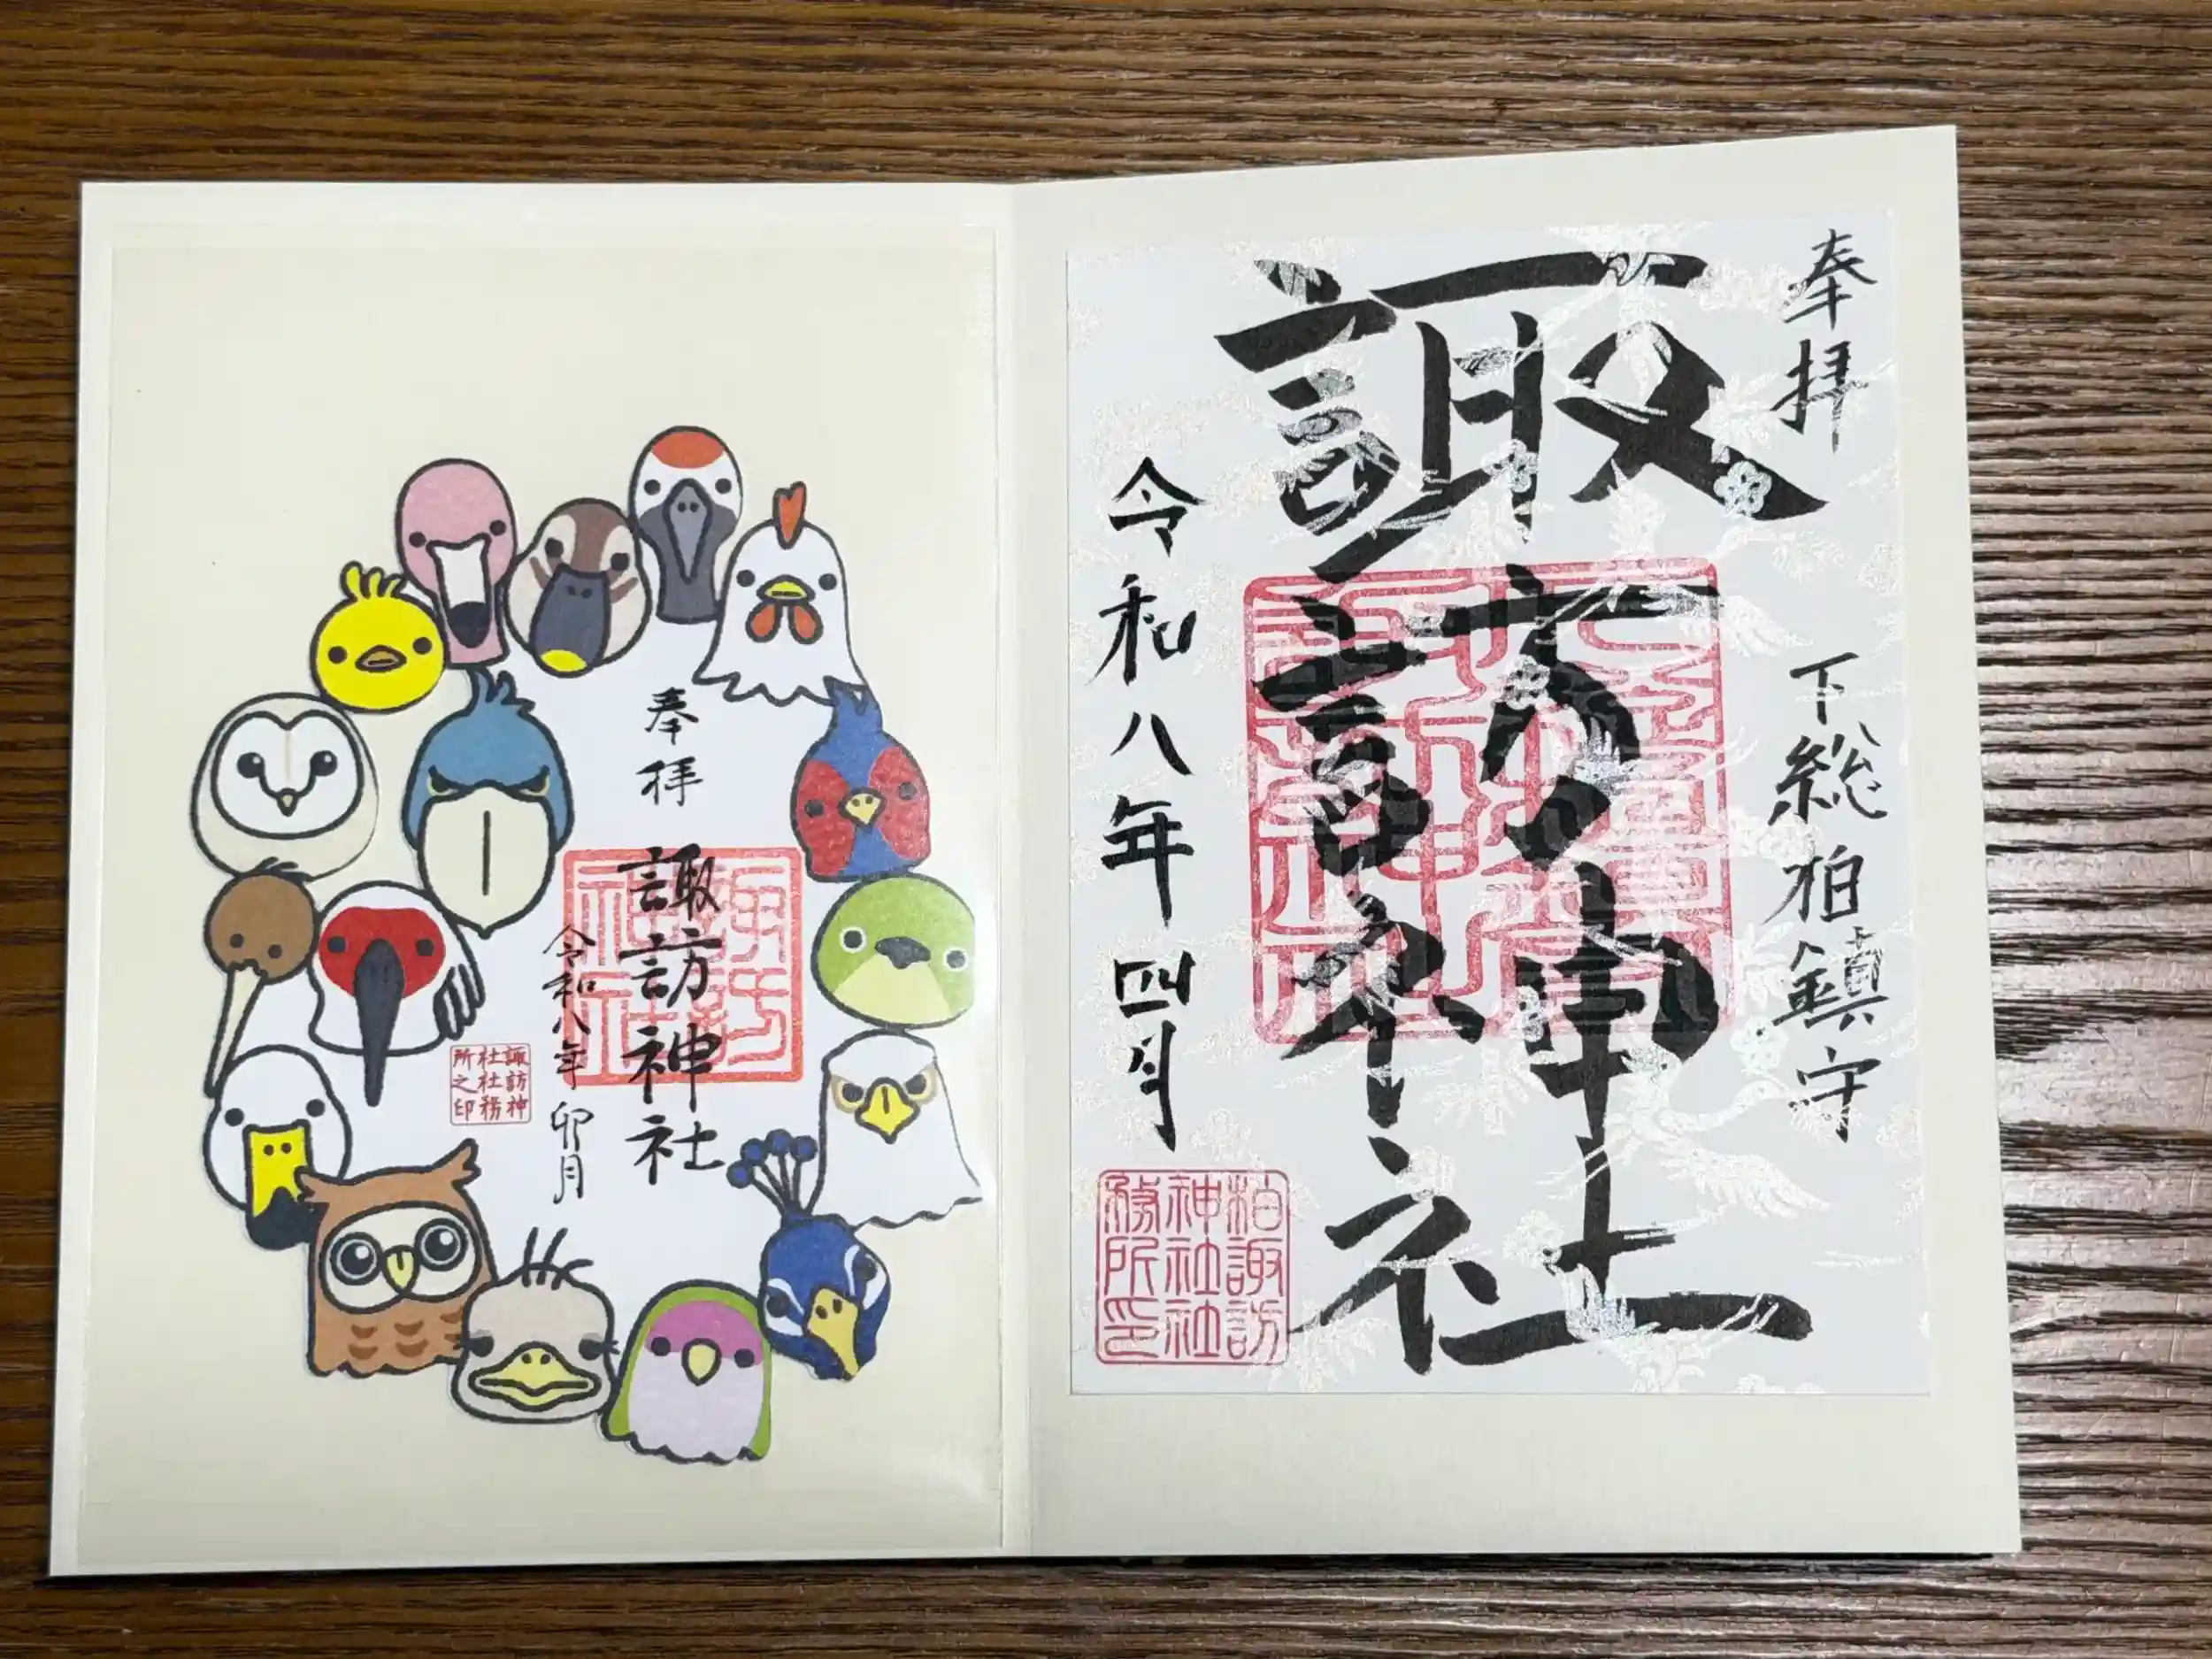 奉拝
下総柏鎮守
諏訪神社
令和八年四月
柏諏訪
神社社
務所印
奉拝
諏訪神社
令和八年卯月
諏訪
神社
諏訪神
社社務
所之印